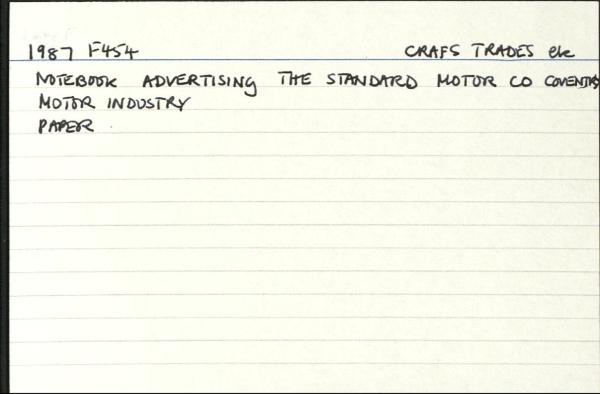 1987 F454 CRAFS TRADES etc
NOTEBOOK ADVERTISING THE STANDARD MOTOR CO COVENTRY
MOTOR INDUSTRY
PAPER